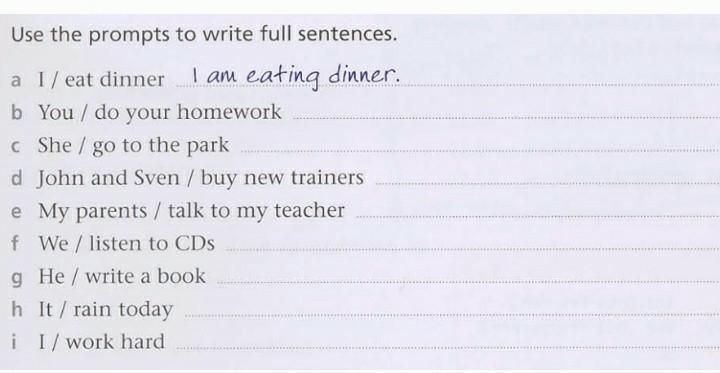 Use the prompts to write full sentences.
a I / eat dinner I am eating dinner.
b You / do your homework
c She / go to the park
d John and Sven / buy new trainers
e My parents / talk to my teacher
f We / listen to CDs
g He / write a book
h It / rain today
i I / work hard